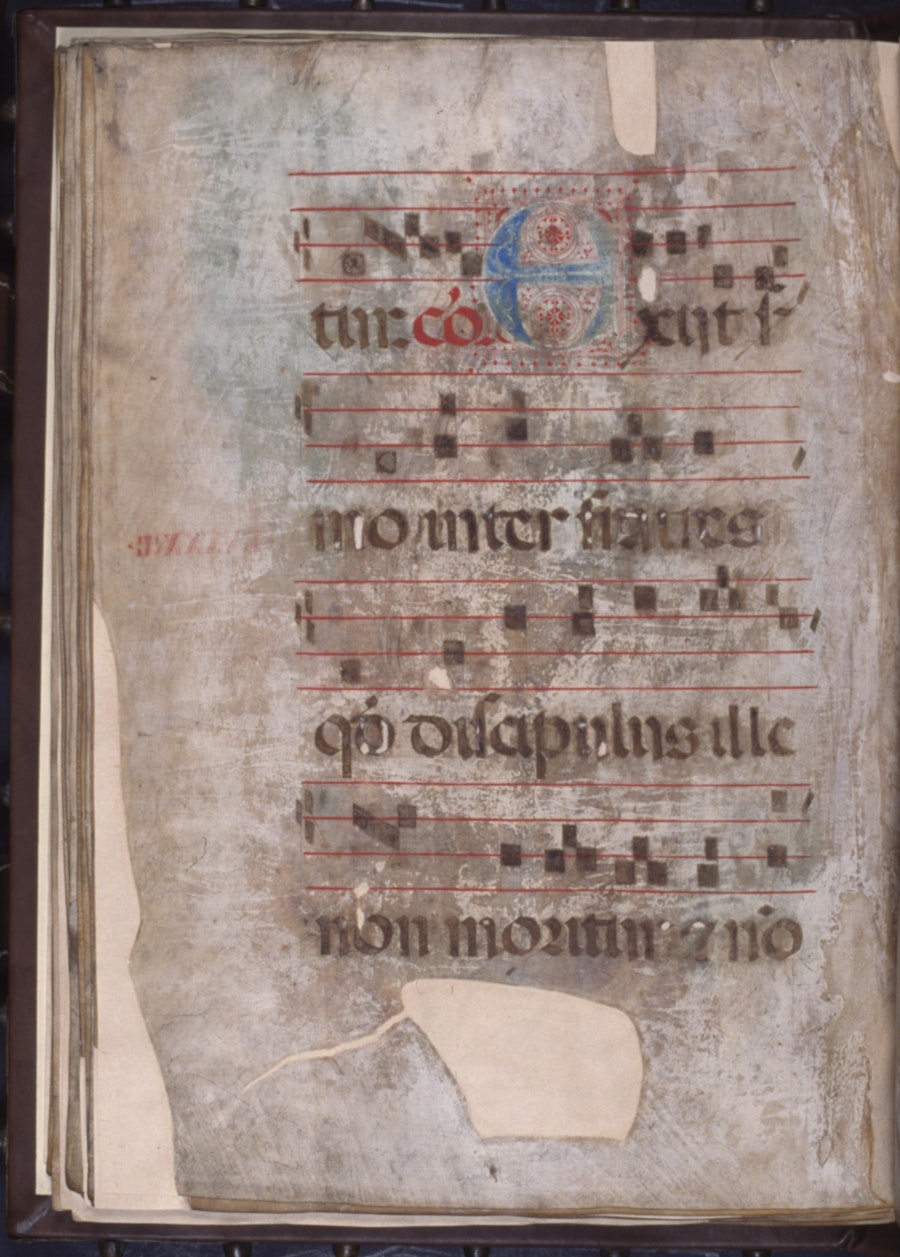 tur. cō. Exiit s̄
mo inter fratres
qđ discipulus ille
non moritur ⁊ nō